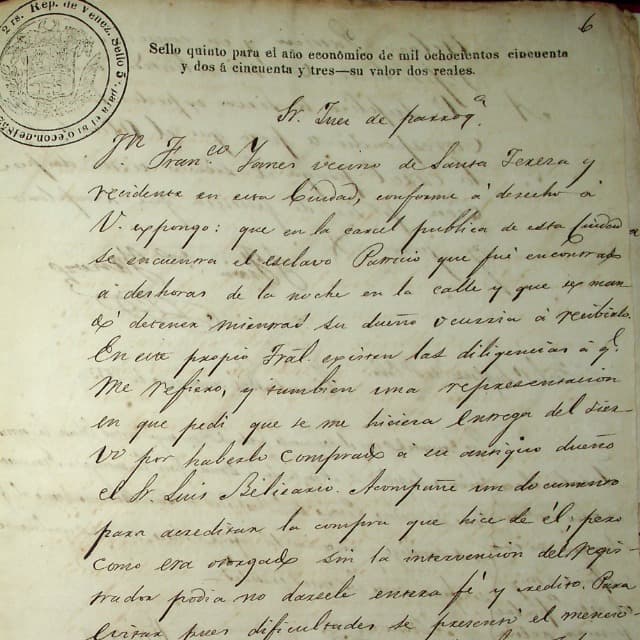 2 rs. Rep. de Venez. Sello 5º. para el añ o econ. de 1852
6
Sello quinto para el año económico de mil ochocientos cincuenta
y dos á cincuenta y tres—su valor dos reales.
Sr. Juez de parroqª.
Jn. Franco. Yanes vecino de Santa Tereza y
recidente en esta Ciudad, conforme á derecho á
V. expongo: que en la carcel publica de esta Ciudad
se encuentra el esclavo Patricio que fué encontrado
á deshoras de la noche en la calle y que se man
dó detener mientras su dueño ocurria á recibirlo.
En este propio Tral. existen las diligencias á q.
me refiero, y tambien una representacion
en que pedi que se me hiciera entrega del sier-
vo por haberlo comprado á su antiguo dueño
el Sr. Luis Belisario. Acompañé un documento
para acreditar la compra que hice de él; pero
como era otorgado sin la intervencion del regis-
trador podia no darsele entera fé y credito. Para
evitar pues dificultades se presentó el mencio-